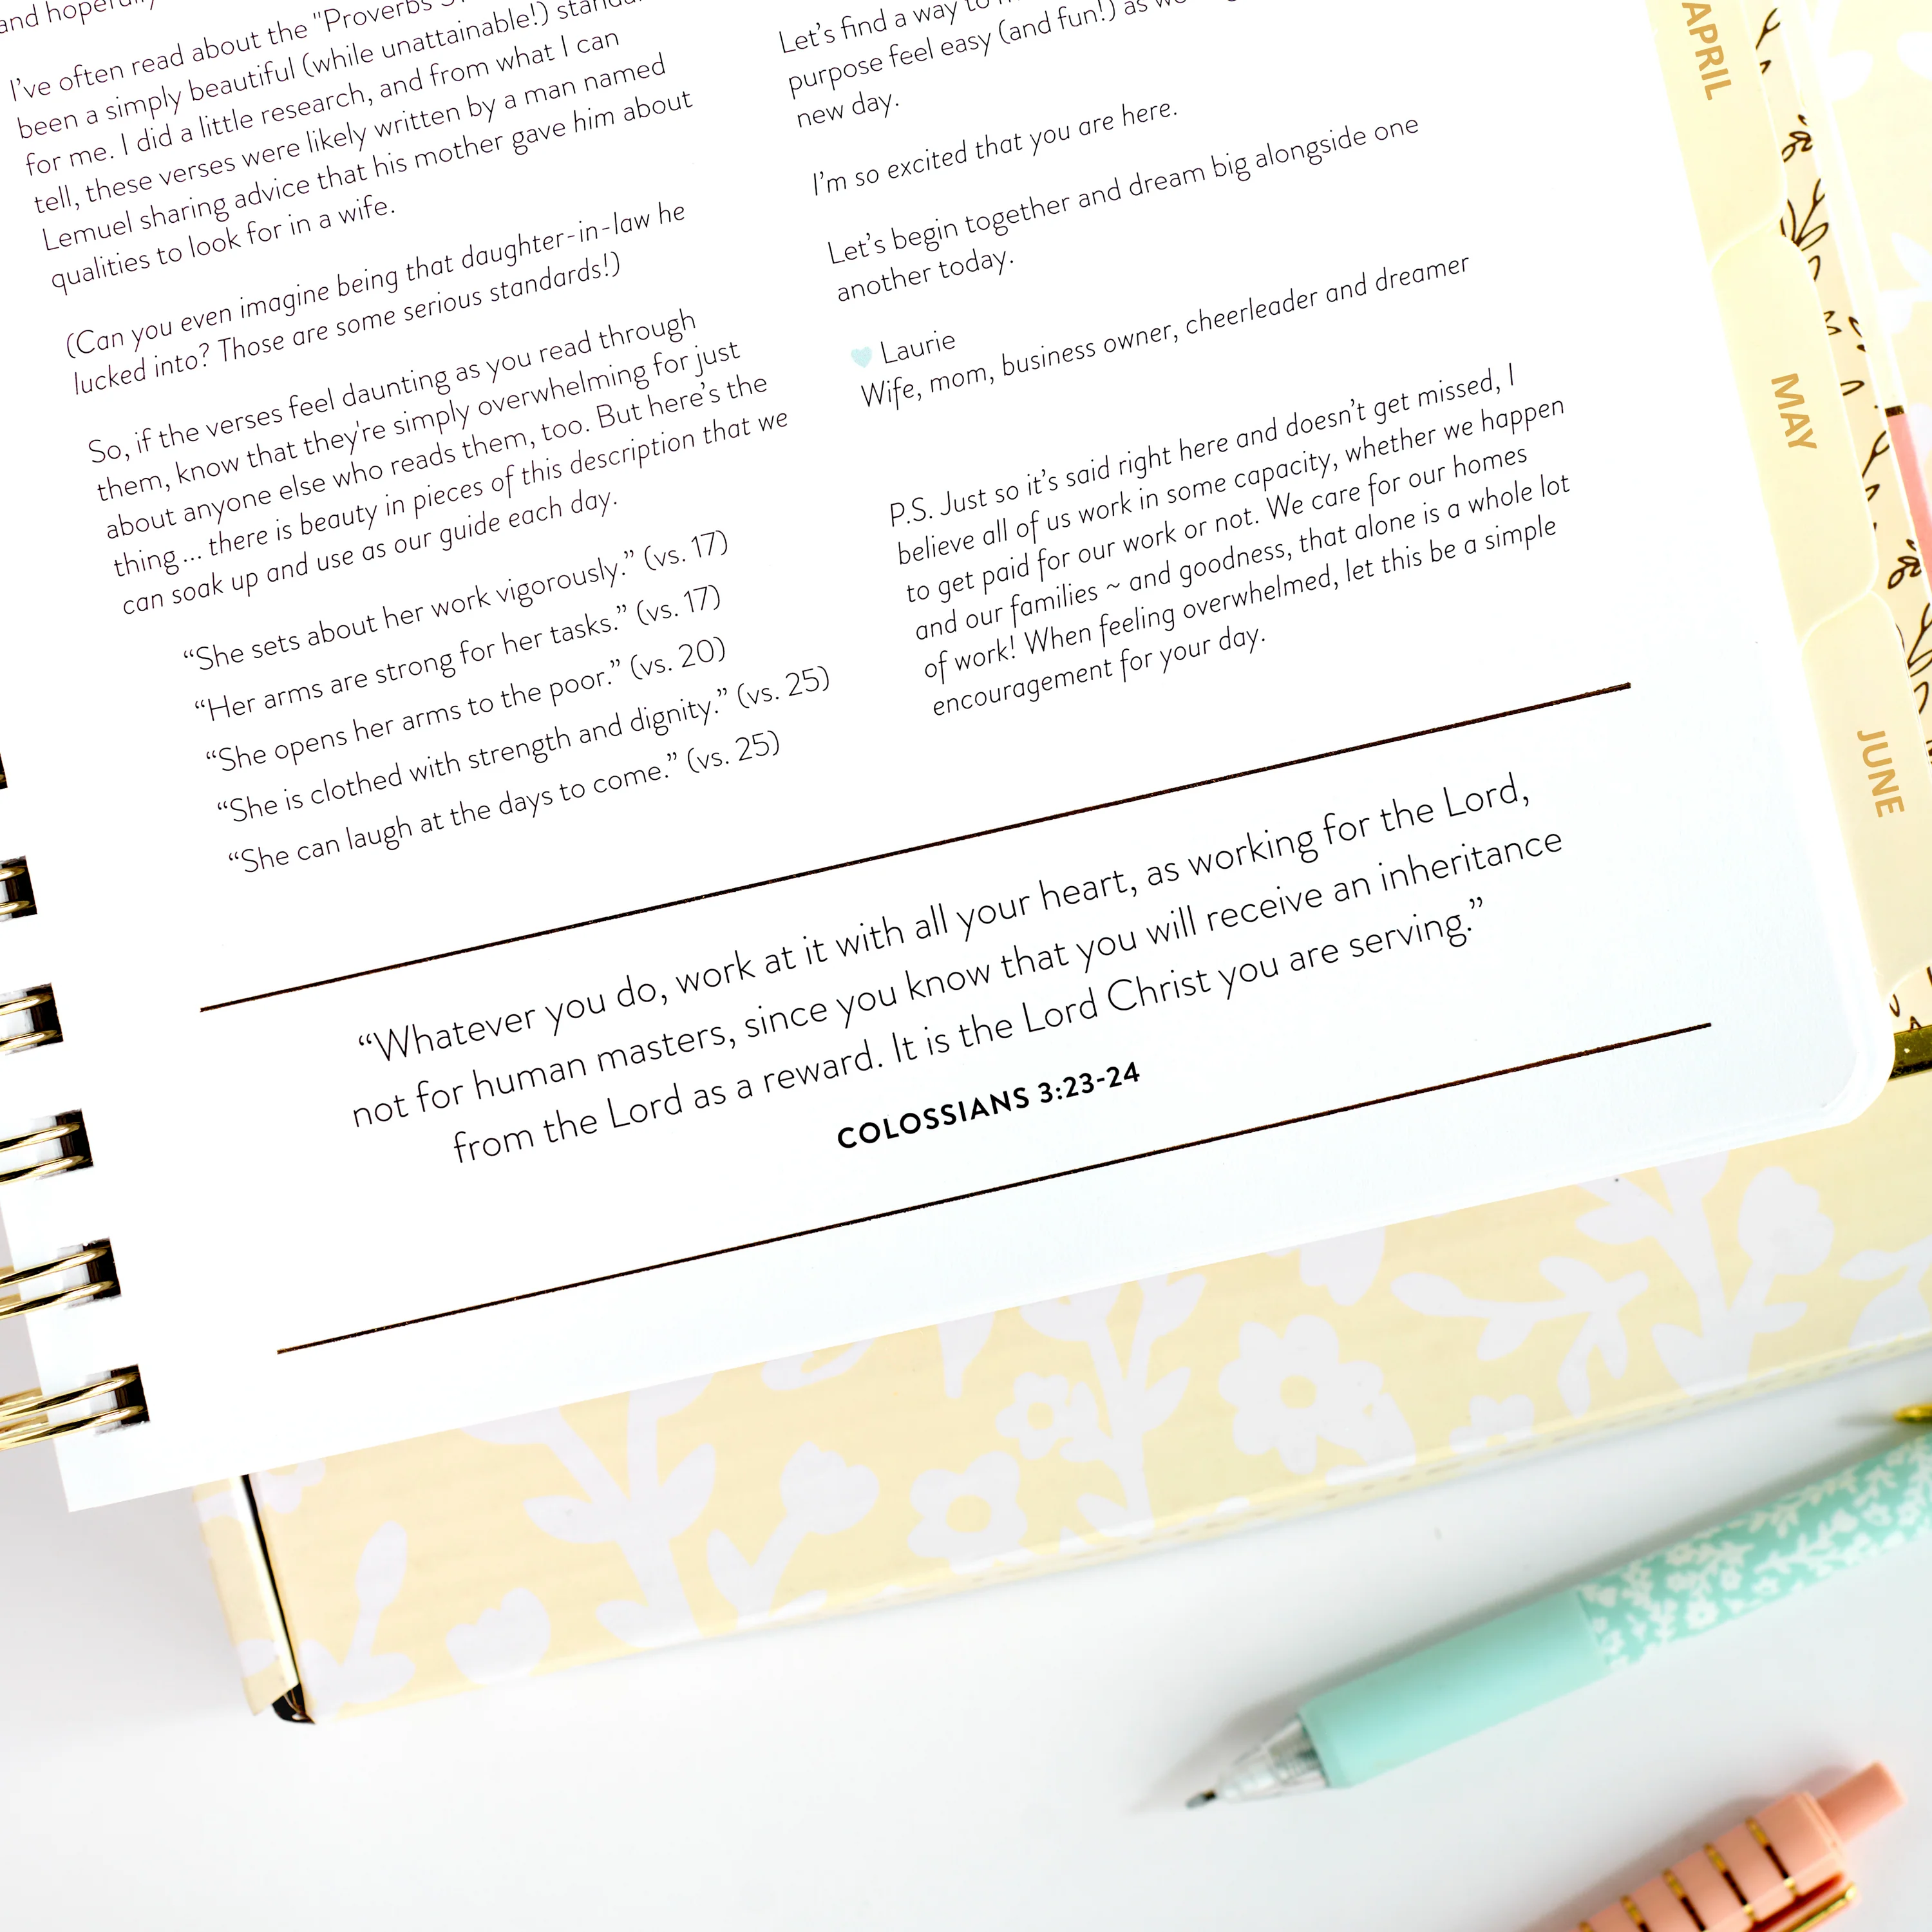 and
I've often read about the "Proverbs
been a simply beautiful (while unattainable!)
for me. I did a little research, and from what I can
tell, these verses were likely written by a man named
Lemuel sharing advice that his mother gave him about
qualities to look for in a wife.
(Can you even imagine being that daughter-in-law he
lucked into? Those are some serious standards!)
So, if the verses feel daunting as you read through
them, know that they're simply overwhelming for just
about anyone else who reads them, too. But here's the
thing... there is beauty in pieces of this description that we
can soak up and use as our guide each day.
“She sets about her work vigorously.” (vs. 17)
“Her arms are strong for her tasks.” (vs. 17)
“She opens her arms to the poor.” (vs. 20)
“She is clothed with strength and dignity.” (vs. 25)
“She can laugh at the days to come.” (vs. 25)
Let's find a way to
purpose feel easy (and fun!) as
new day.
I'm so excited that you are here.
Let's begin together and dream big alongside one
another today.
Laurie
Wife, mom, business owner, cheerleader and dreamer
P.S. Just so it's said right here and doesn't get missed, I
believe all of us work in some capacity, whether we happen
to get paid for our work or not. We care for our homes
and our families ~ and goodness, that alone is a whole lot
of work! When feeling overwhelmed, let this be a simple
encouragement for your day.
“Whatever you do, work at it with all your heart, as working for the Lord,
not for human masters, since you know that you will receive an inheritance
from the Lord as a reward. It is the Lord Christ you are serving.”
COLOSSIANS 3:23-24
APRIL
MAY
JUNE